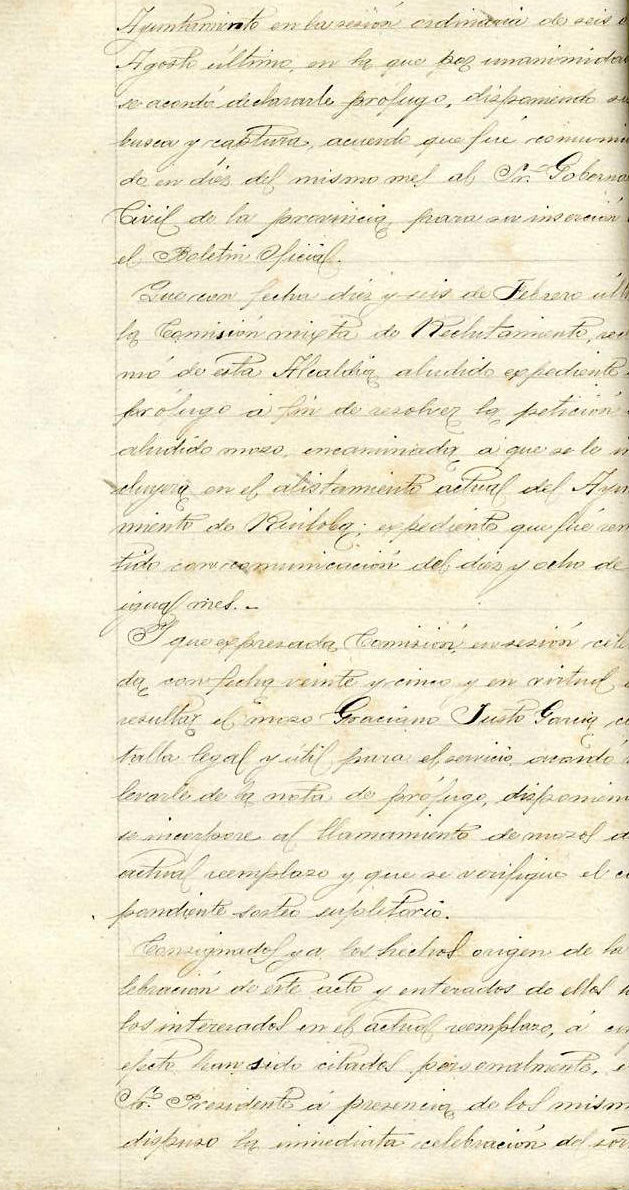 Ayuntamiento en la sesión ordinaria de seis
Agosto último, en la que por unanimidad
se acordó declararle prófugo, disponiendo su
busca y captura, acuerdo que fué comuni
do en diez del mismo mes al Sr. Goberna
Civil de la provincia, para su inserción
el Boletín Oficial.
Que con fecha diez y seis de Febrero últi
la Comisión mixta de Reclutamiento, re
mó de esta Alcaldía, aludido expediente
prófugo á fin de resolver la petición
aludido mozo, encaminada, á que se le in
cluyera en el alistamiento actual del Ayun
miento de Ruiloba; expediente que fué rem
tido con comunicación del diez y ocho de
igual mes.-
Y que expresada, Comisión, en sesión cele
da, con fecha veinte y cinco y en virtud
resultar el mozo Graciano Justo Garcia, c
talla legal y útil, para el servicio, acordó
levarle de la nota de prófugo, disponien
se incorpore al llamamiento de mozos d
actual reemplazo y que se verifique el c
pondiente sorteo supletorio.
Consignados ya los hechos origen de la
lebración de este acto y enterados de ellos
los interesados en el actual reemplazo, á cuy
efecto han sido citados personalmente, e
Sr. Presidente á presencia, de los mism
dispuso la inmediata celebración del sort